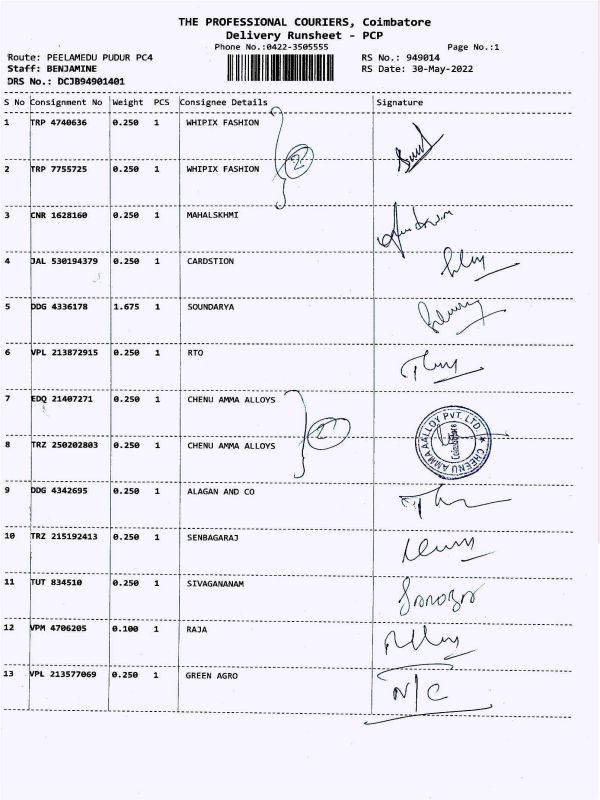 THE PROFESSIONAL COURIERS, Coimbatore
Delivery Runsheet - PCP
Phone No.:0422-3505555 Page No.:1
Route: PEELAMEDU PUDUR PC4 RS No.: 949014
Staff: BENJAMINE RS Date: 30-May-2022
DRS No.: DCJB94901401
S No Consignment No Weight PCS Consignee Details Signature
1 TRP 4740636 0.250 1 WHIPIX FASHION
2
2 TRP 7755725 0.250 1 WHIPIX FASHION
3 CNR 1628160 0.250 1 MAHALSKHMI
4 JAL 530194379 0.250 1 CARDSTION
5 DDG 4336178 1.675 1 SOUNDARYA
6 VPL 213872915 0.250 1 RTO
7 EDQ 21407271 0.250 1 CHENU AMMA ALLOYS
2
CHEENU AMMA AALLOY PVT. LTD. ★
Coimbatore
8 TRZ 250202803 0.250 1 CHENU AMMA ALLOYS
9 DDG 4342695 0.250 1 ALAGAN AND CO
10 TRZ 215192413 0.250 1 SENBAGARAJ
11 TUT 834510 0.250 1 SIVAGANANAM
12 VPM 4706205 0.100 1 RAJA
13 VPL 213577069 0.250 1 GREEN AGRO N/C